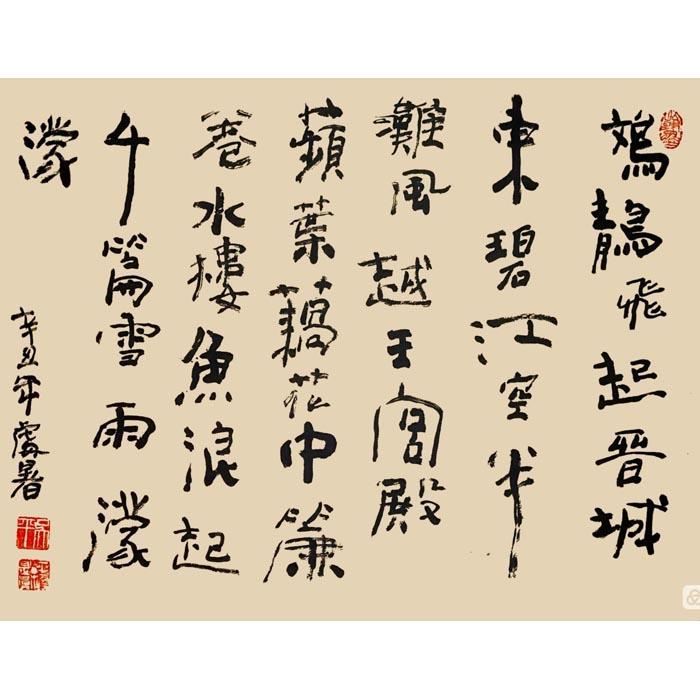 鵁鶄飛起晉城
東碧江空半
灘風越王宮殿
蘋葉藕花中簾
卷水樓魚浪起
千篇雪雨濛
濛
辛丑年處暑